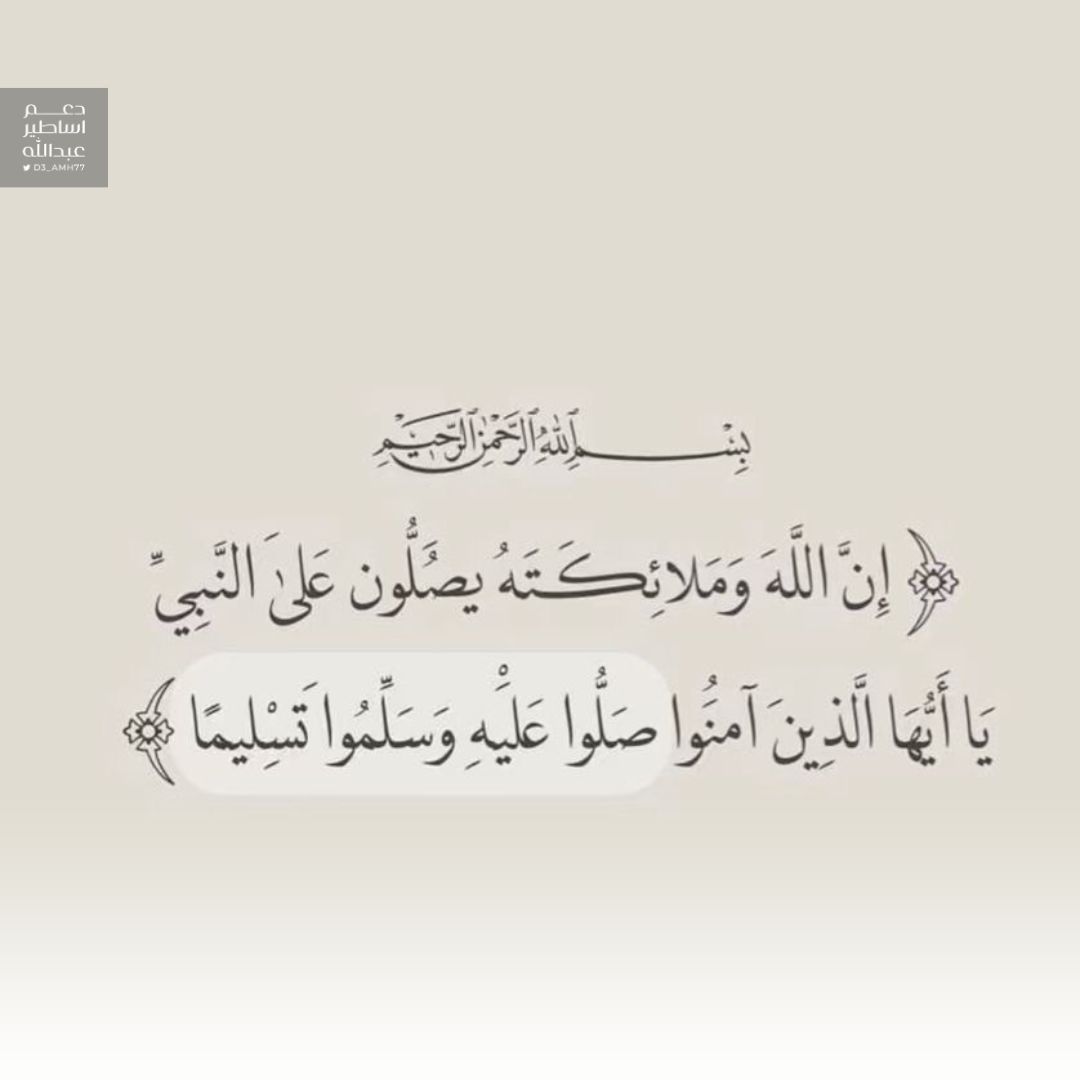 دعم
اساطير
عبدالله
D3_AMH77
بِسْمِ اللَّهِ الرَّحْمَٰنِ الرَّحِيمِ
﴿ إِنَّ اللَّهَ وَمَلَائِكَتَهُ يُصَلُّونَ عَلَى النَّبِيِّ
يَا أَيُّهَا الَّذِينَ آمَنُوا صَلُّوا عَلَيْهِ وَسَلِّمُوا تَسْلِيمًا ﴾